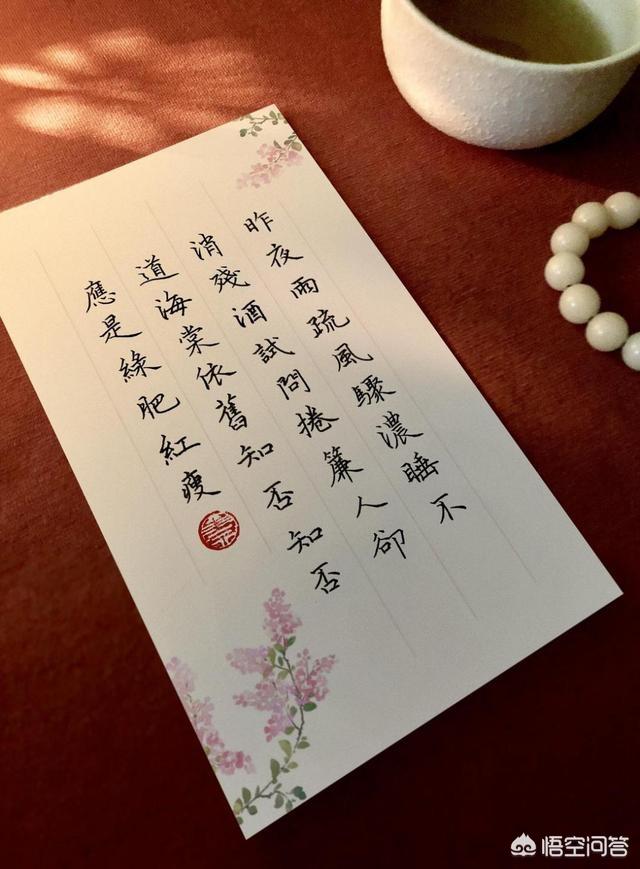 昨夜雨疏風驟濃睡不
消殘酒試問捲簾人卻
道海棠依舊知否知否
應是綠肥紅瘦
悟空问答